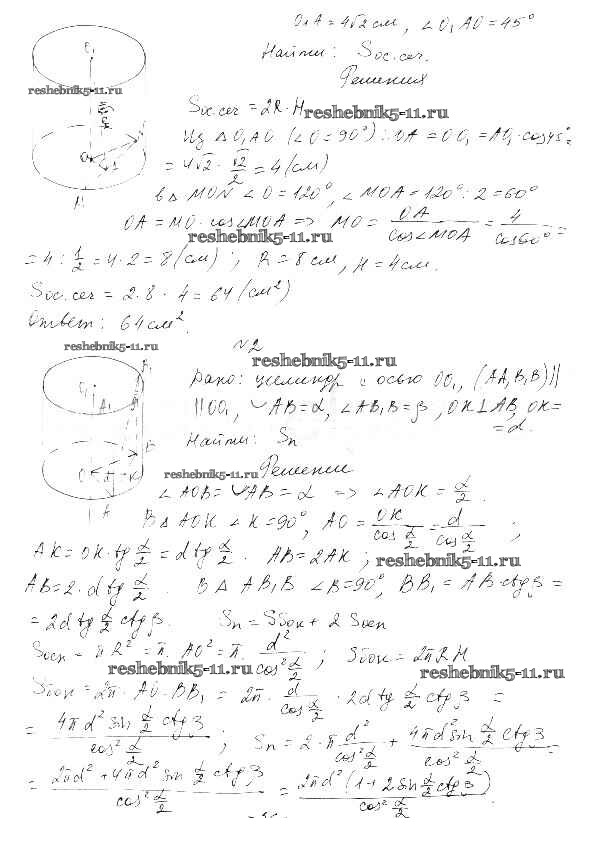 O₁A = 4√2 см, ∠O₁AO = 45°
Найти: Sос.сеч.
Решения
reshebnik5-11.ru
Sос.сеч = 2R·H
reshebnik5-11.ru
Из △O₁AO (∠O=90°): OA = OO₁ = AO₁·cos45° =
= 4√2 · √2/2 = 4 (см)
в △ MON ∠O = 120°, ∠MOA = 120° : 2 = 60°
OA = MO·cos∠MOA => MO = OA/cos∠MOA = 4/cos60° =
reshebnik5-11.ru
= 4 : 1/2 = 4·2 = 8 (см); R = 8 см, H = 4 см.
Sос.сеч = 2·8·4 = 64 (см²)
Ответ: 64 см².
reshebnik5-11.ru
N2
reshebnik5-11.ru
Дано: цилиндр с осью OO₁, (AA₁B₁B) ||
|| OO₁, ◡AB = α, ∠AB₁B = β, OK⊥AB, OK =
= d.
Найти: Sп
reshebnik5-11.ru
Решение
∠AOB = ◡AB = α => ∠AOK = α/2.
В △ AOK ∠K = 90°, AO = OK/cos α/2 = d/cos α/2;
AK = OK·tg α/2 = d tg α/2. AB = 2AK;
reshebnik5-11.ru
AB = 2·d tg α/2. В △ AB₁B ∠B = 90°, BB₁ = AB·ctgβ =
= 2d tg α/2 ctgβ. Sп = Sбок + 2 Sосн
Sосн = πR² = π·AO² = π·d²/cos² α/2; Sбок = 2πRH
reshebnik5-11.ru
reshebnik5-11.ru
Sбок = 2π·AO·BB₁ = 2π·d/cos α/2 · 2d tg α/2 ctgβ =
= 4πd² sin α/2 ctgβ/cos² α/2; Sп = 2·π d²/cos² α/2 + 4πd² sin α/2 ctgβ/cos² α/2 =
= 2πd² + 4πd² sin α/2 ctgβ/cos² α/2 = 2πd²(1 + 2 sin α/2 ctgβ)/cos² α/2